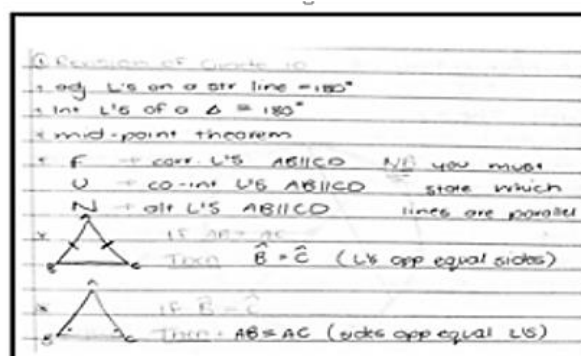 ① Revision of Grade 10
* adj L's on a str line = 180°
* Int L's of a Δ = 180°
* mid-point theorem
* F → corr. L's AB||CD NB you must
U → co-int L's AB||CD state which
N → alt L's AB||CD lines are parallel
A
* IF AB = AC
B C Then B̂ = Ĉ (L's opp equal sides)
A
* IF B̂ = Ĉ
B C Then AB = AC (sides opp equal L's)